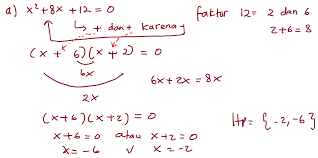 a) x² + 8x + 12 = 0
faktor 12 = 2 dan 6
↳ + dan + karena
2+6 = 8
(x + 6)(x + 2) = 0
6x
6x + 2x = 8x
2x
(x+6)(x+2) = 0
x+6 = 0 atau x+2 = 0
Hp = {-2, -6}
x = -6 v x = -2